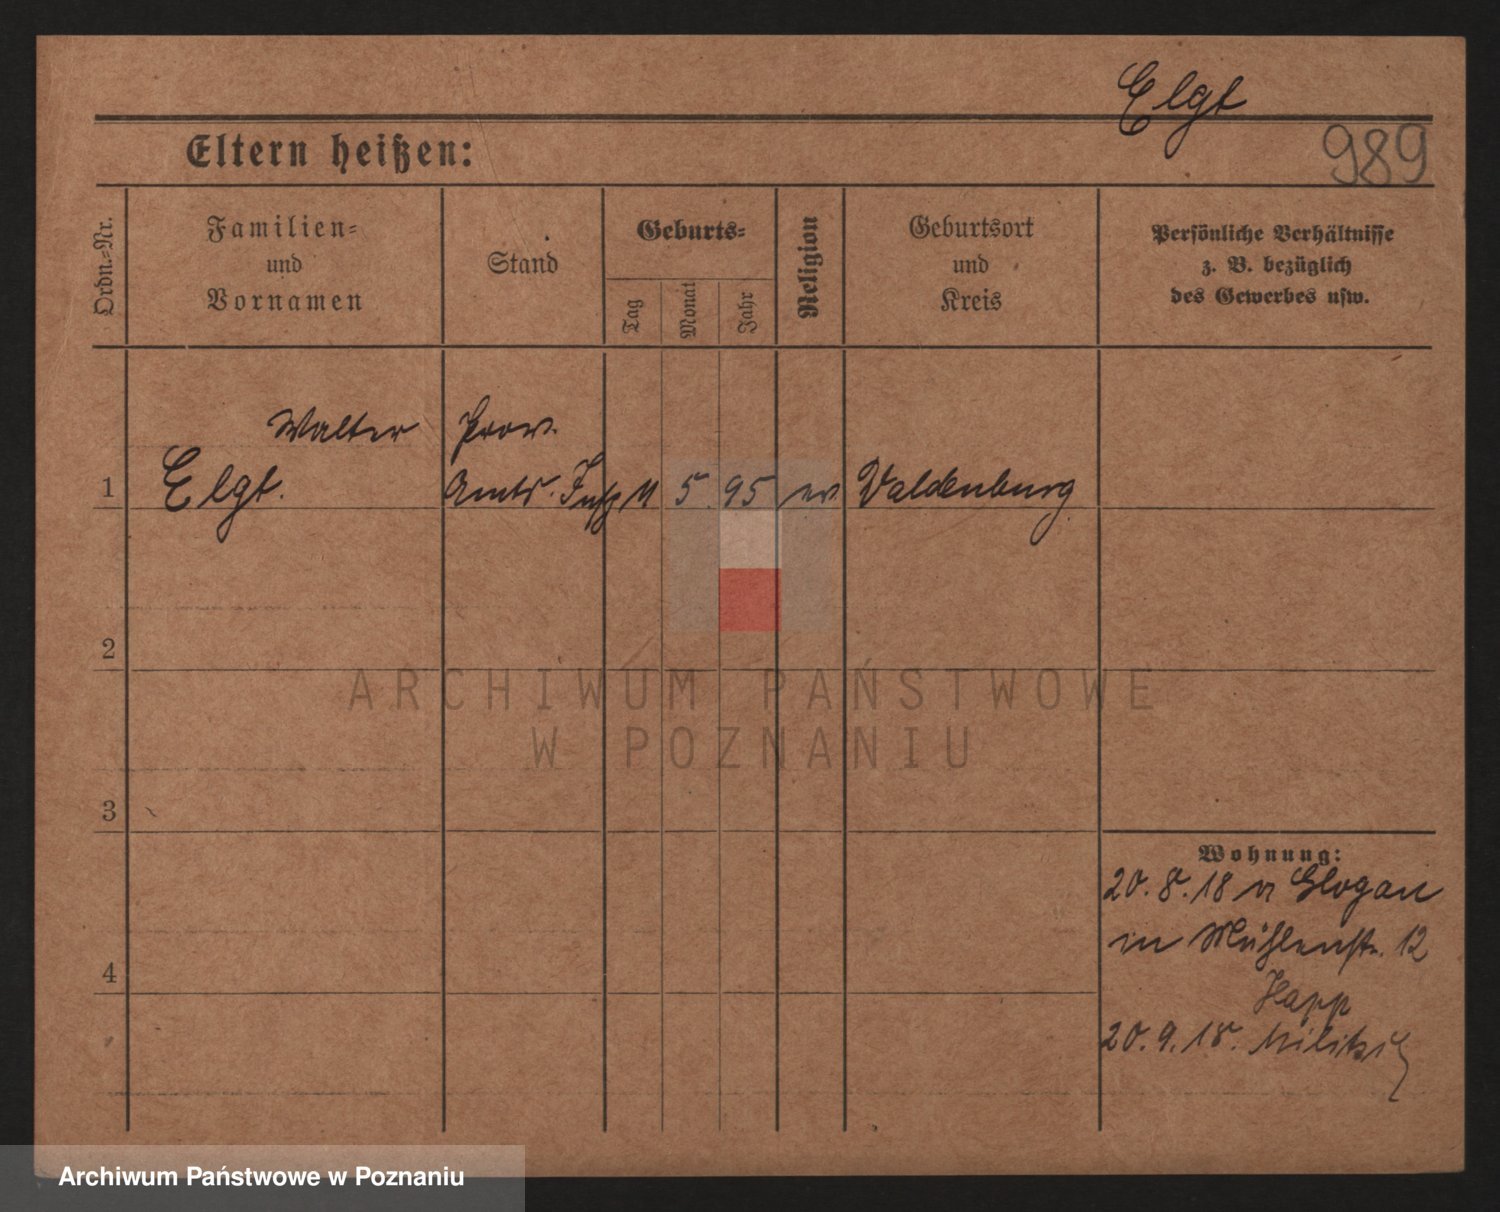 Elgt
989
Eltern heißen:
Ordn.-Nr.
Familien-
und
Vornamen
Stand
Geburts-
Tag
Monat
Jahr
Religion
Geburtsort
und
Kreis
Persönliche Verhältnisse
z. B. bezüglich
des Gewerbes usw.
Walter Prov.
1 Elgt. Amts. Insp 11 5 95 ev Waldenburg
2
ARCHIWUM PAŃSTWOWE
W POZNANIU
3
Wohnung:
20.8.18 v Glogau
in Mühlenstr. 12
Happ
4
20.9.18. Militsch
Archiwum Państwowe w Poznaniu